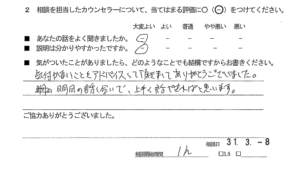 2 相談を担当したカウンセラーについて、当てはまる評価に○(○)をつけてください。
大変よい よい 普通 やや悪い 悪い
■ あなたの話をよく聞きましたか。
■ 説明は分かりやすかったですか。
■ 気がついたことがありましたら、どのようなことでも結構ですからお書きください。
気付かないこともアドバイスして頂きましてありがとうございました。
明日の話し合いで、上手く話せればと思います。
ご協力ありがとうございました。
31. 3. -8